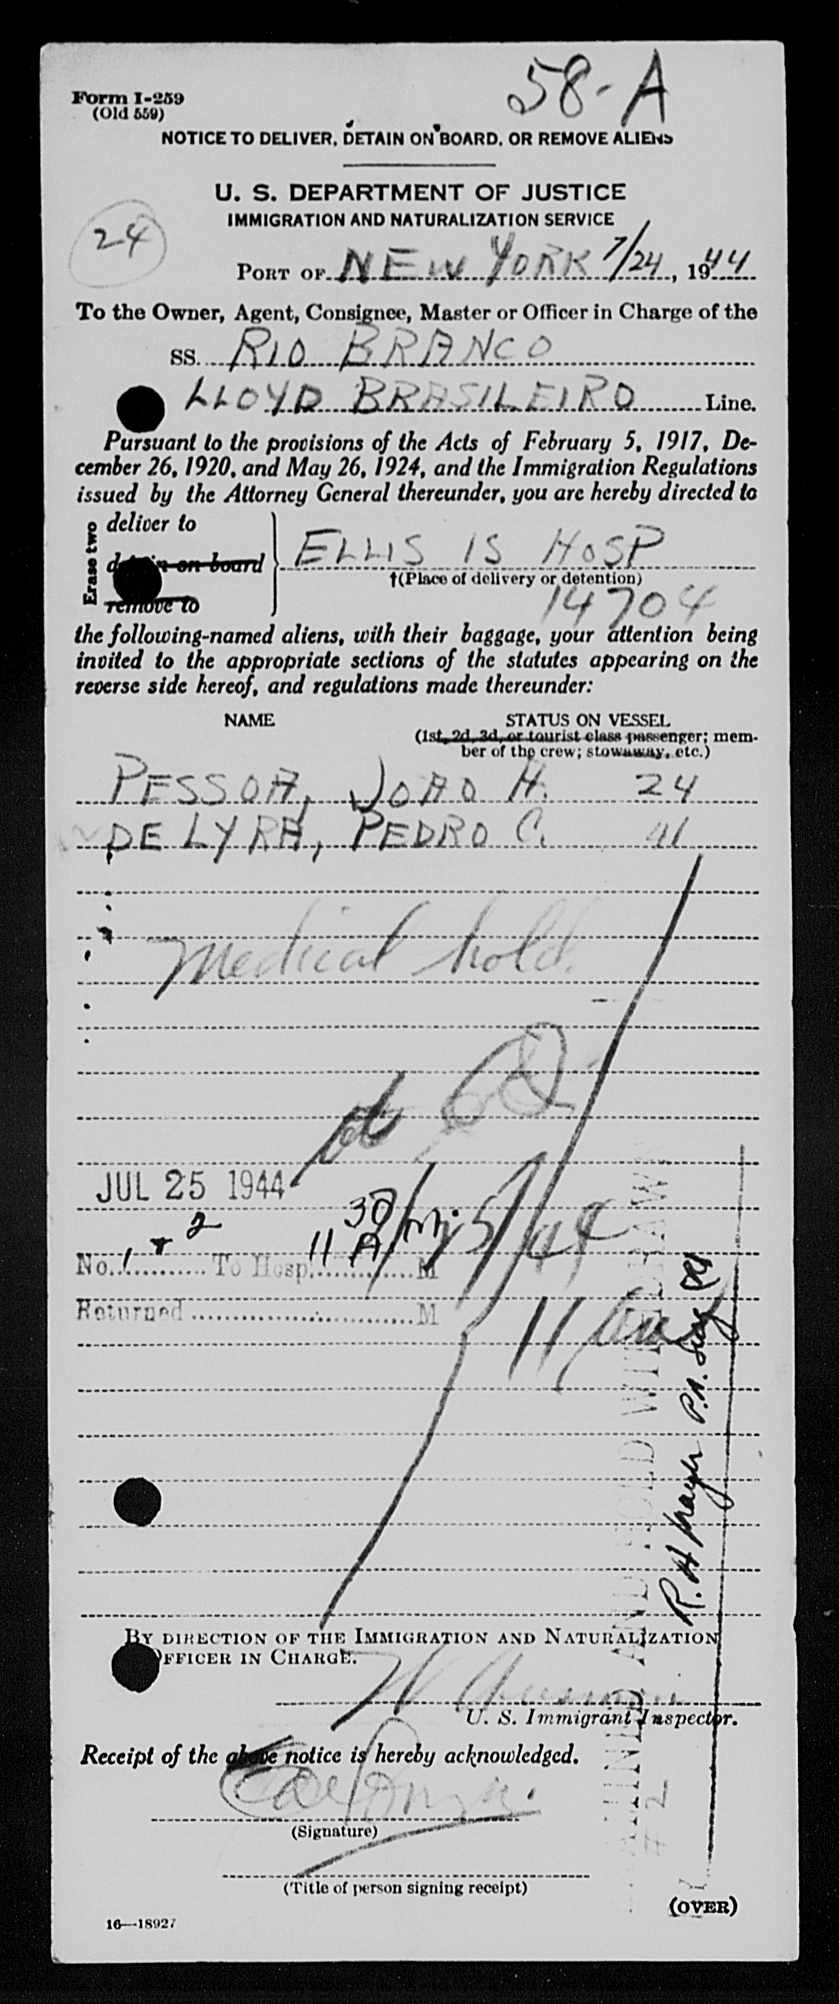 58-A
Form I-259
(Old 559)
NOTICE TO DELIVER, DETAIN ON BOARD, OR REMOVE ALIENS
U. S. DEPARTMENT OF JUSTICE
IMMIGRATION AND NATURALIZATION SERVICE
24
PORT OF NEW YORK 7/24, 1944
To the Owner, Agent, Consignee, Master or Officer in Charge of the
SS. RIO BRANCO
LLOYD BRASILEIRO Line.
Pursuant to the provisions of the Acts of February 5, 1917, De-
cember 26, 1920, and May 26, 1924, and the Immigration Regulations
issued by the Attorney General thereunder, you are hereby directed to
Erase two
deliver to
detain on board
remove to
ELLIS IS HOSP
†(Place of delivery or detention)
14704
the following-named aliens, with their baggage, your attention being
invited to the appropriate sections of the statutes appearing on the
reverse side hereof, and regulations made thereunder:
NAME STATUS ON VESSEL
(1st, 2d, 3d, or tourist class passenger; mem-
ber of the crew; stowaway, etc.)
PESSOA, JOAO H. 24
DE LYRA, PEDRO C. 41
Medical hold.
JUL 25 1944
No. 1 + 2 To Hosp. 11 30 A M
Returned M
11 am
EXAMINED AND HOLD WITHDRAWN
# 2
BY DIRECTION OF THE IMMIGRATION AND NATURALIZATION
OFFICER IN CHARGE.
U. S. Immigrant Inspector.
Receipt of the above notice is hereby acknowledged.
(Signature)
(Title of person signing receipt)
16—18927
(OVER)